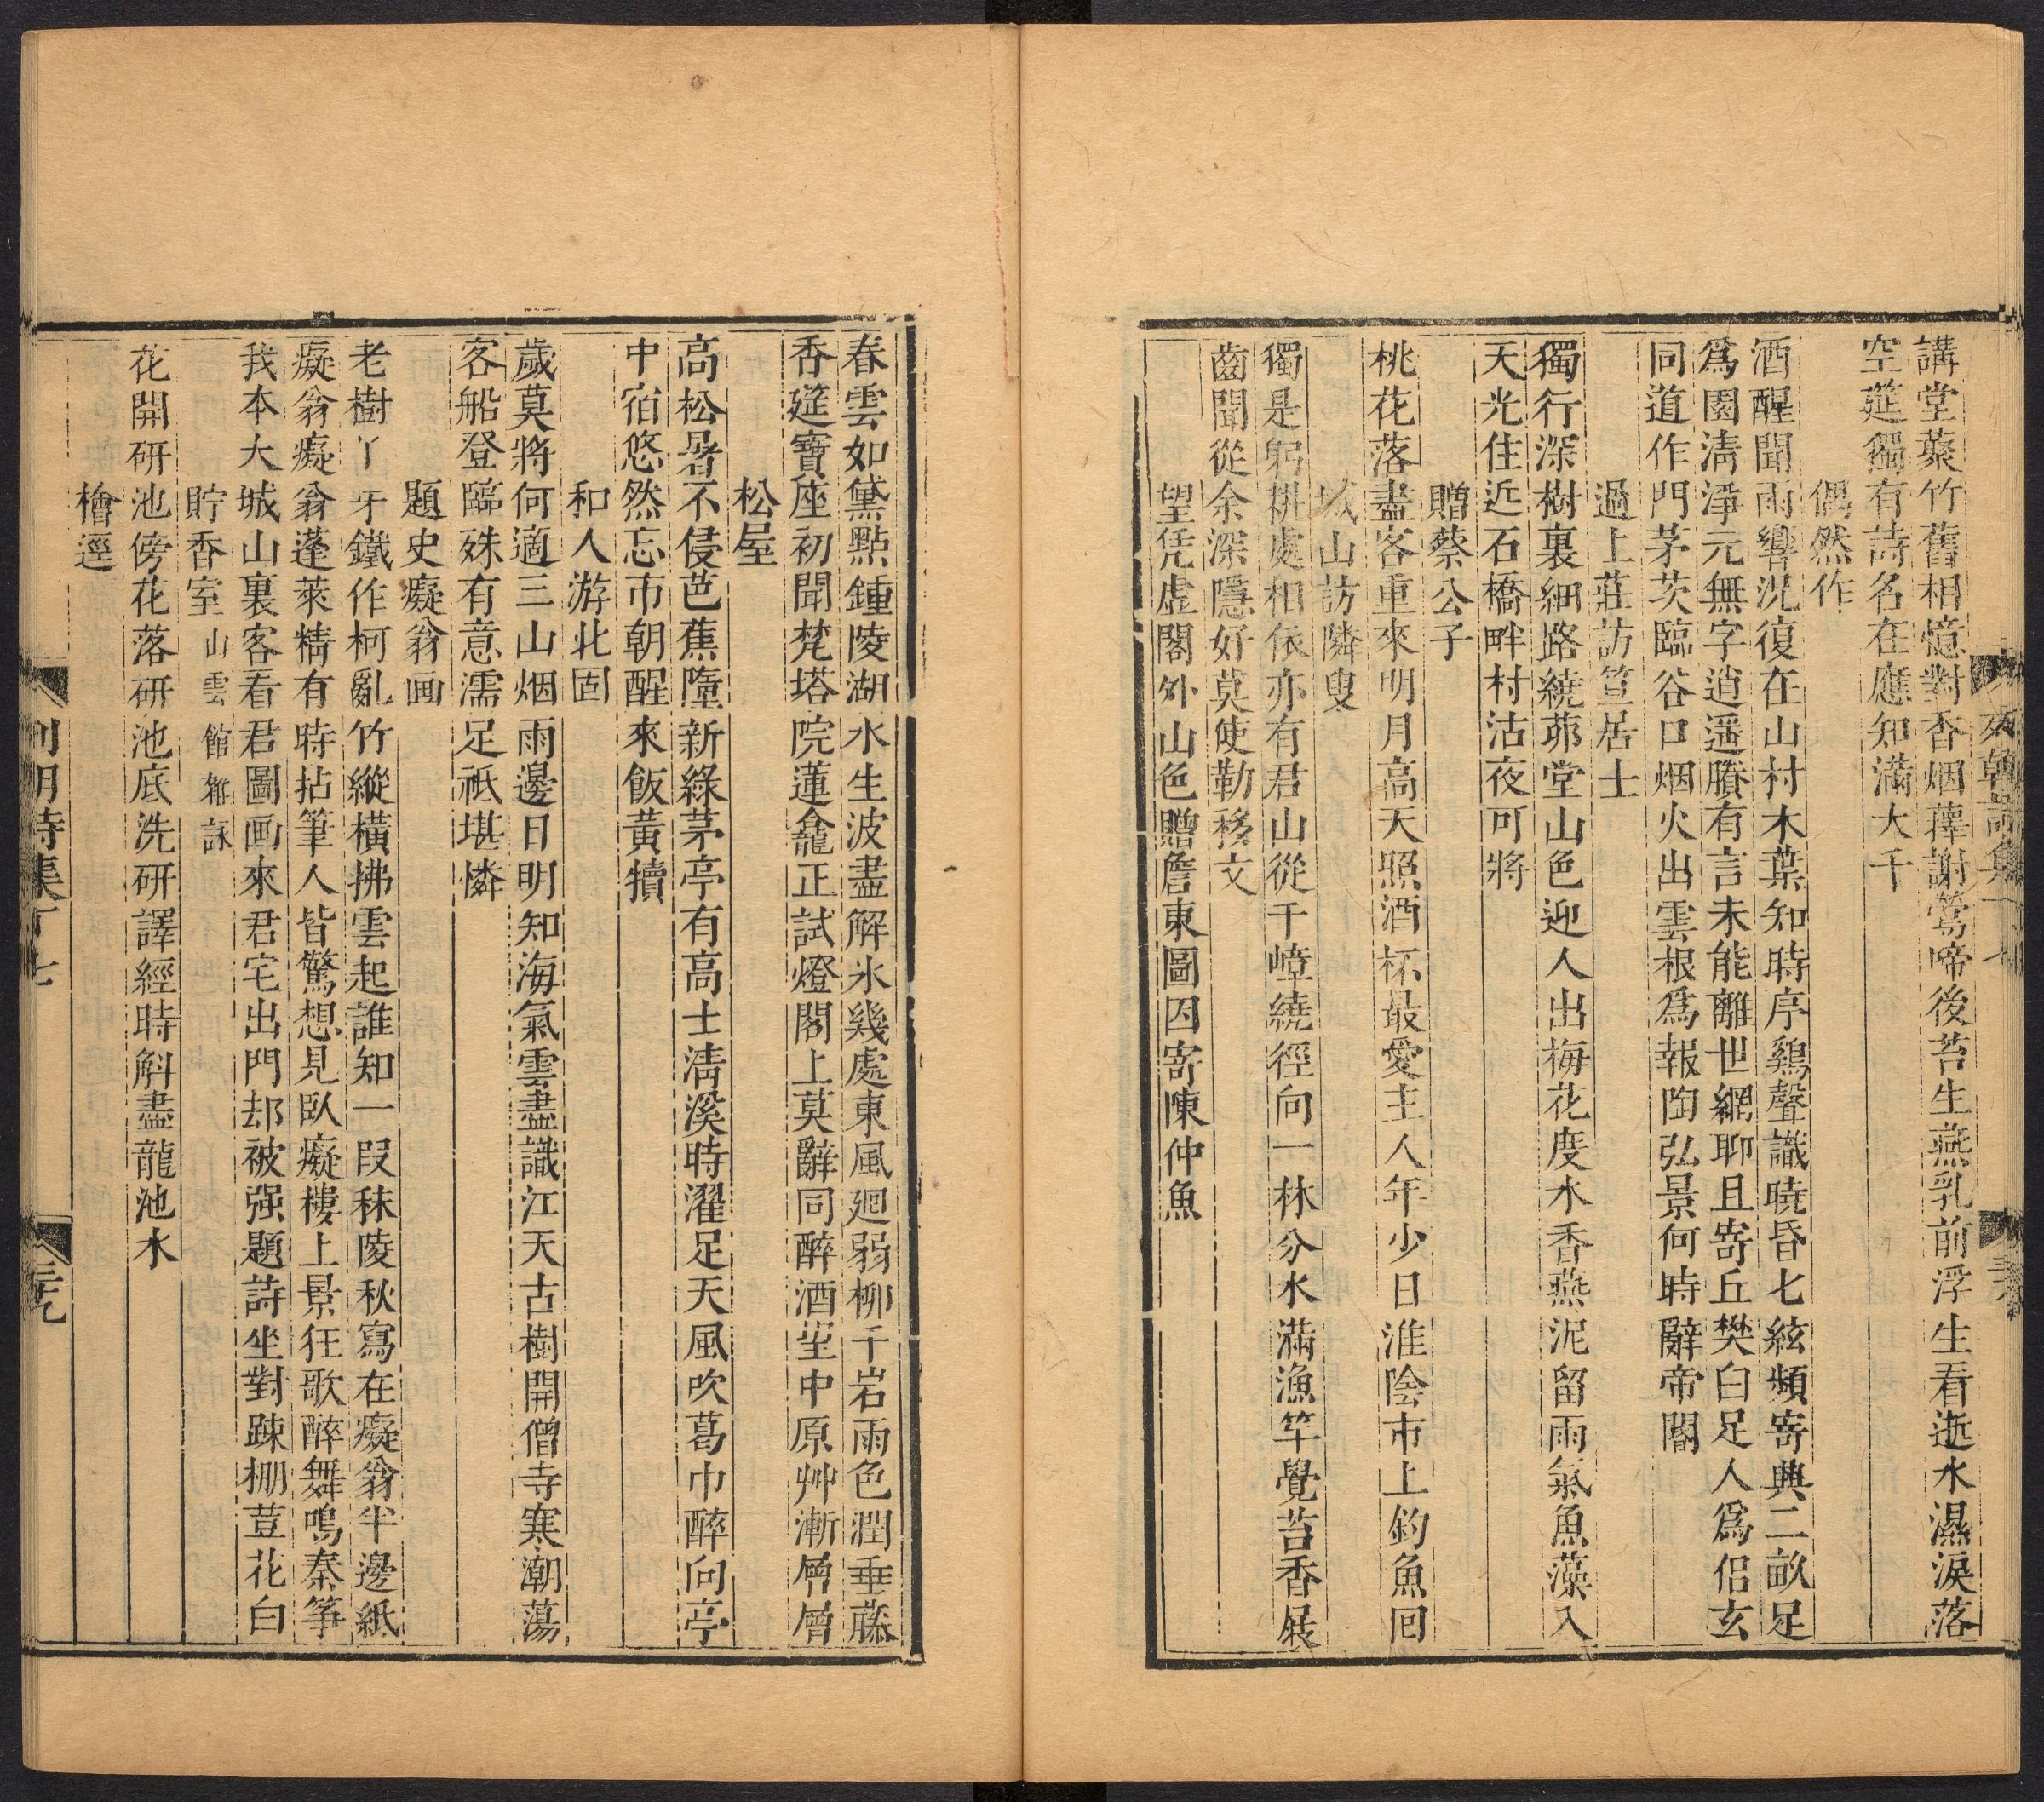 列朝詩集
講堂蓺竹舊相憶對香烟蘀謝鶯啼後苔生燕乳前浮生看逝水濕淚落
空筵獨有詩名在應知滿大千
偶然作
酒醒聞雨響況復在山村木葉知時序鷄聲識曉昏七絃頻寄典二畝足
爲園淸淨元無字逍遥賸有言未能離世網聊且寄丘樊白足人爲侣玄
同道作門茅茨臨谷口烟火出雲根爲報陶弘景何時辭帝閽
過上莊訪笪居士
獨行深樹裏細路繞茆堂山色迎人出梅花度水香燕泥留雨氣魚藻入
天光住近石橋畔村沽夜可將
贈蔡公子
桃花落盡客重來明月高天照酒杯最愛主人年少日淮陰市上釣魚囘
城山訪隣叟
獨是躬耕處相依亦有君山從千嶂繞徑向一林分水滿漁竿覺苔香屐
齒聞從余深隱好莫使勒移文
望凭虛閣外山色贈詹東圖因寄陳仲魚
春雲如黛點鍾陵湖水生波盡解氷幾處東風廻弱柳千岩雨色潤垂藤
香筵寶座初聞梵塔院蓮龕正試燈閣上莫辭同醉酒坐中原艸漸層層
松屋
高松暑不侵芭蕉墮新綠茅亭有高士淸溪時濯足天風吹葛巾醉向亭
中宿悠然忘市朝醒來飯黃犢
和人游北固
歲莫將何適三山烟雨邊日明知海氣雲盡識江天古樹開僧寺寒潮蕩
客船登臨殊有意濡足祇堪憐
題史癡翁画
老樹丫牙鐵作柯亂竹縱橫拂雲起誰知一叚秣陵秋寫在癡翁半邊紙
癡翁癡翁蓬萊精有時拈筆人皆驚想見臥癡樓上景狂歌醉舞鳴秦筝
我本大城山裏客看君圖画來君宅出門却被强題詩坐對踈棚荳花白
貯香室 山雲館雜詠
花開研池傍花落研池底洗研譯經時斛盡龍池水
檜逕
列朝詩集 丁七 三九